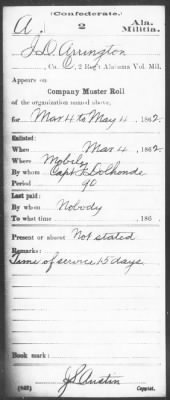 (Confederate.)
A. 2 Ala. Militia.
J. D. Arrington
, Co. C, 2 Reg't Alabama Vol. Mil.
Appears on
Company Muster Roll
of the organization named above,
for Mar 4 to May 4, 1862.
Enlisted:
When Mar 4, 1862.
Where Mobile
By whom Capt
Period 90
Last paid:
By whom Nobody
To what time , 186 .
Present or absent Not stated
Remarks:
Time of service 15 days.
Book mark:
J S Austin
(642) Copyist.